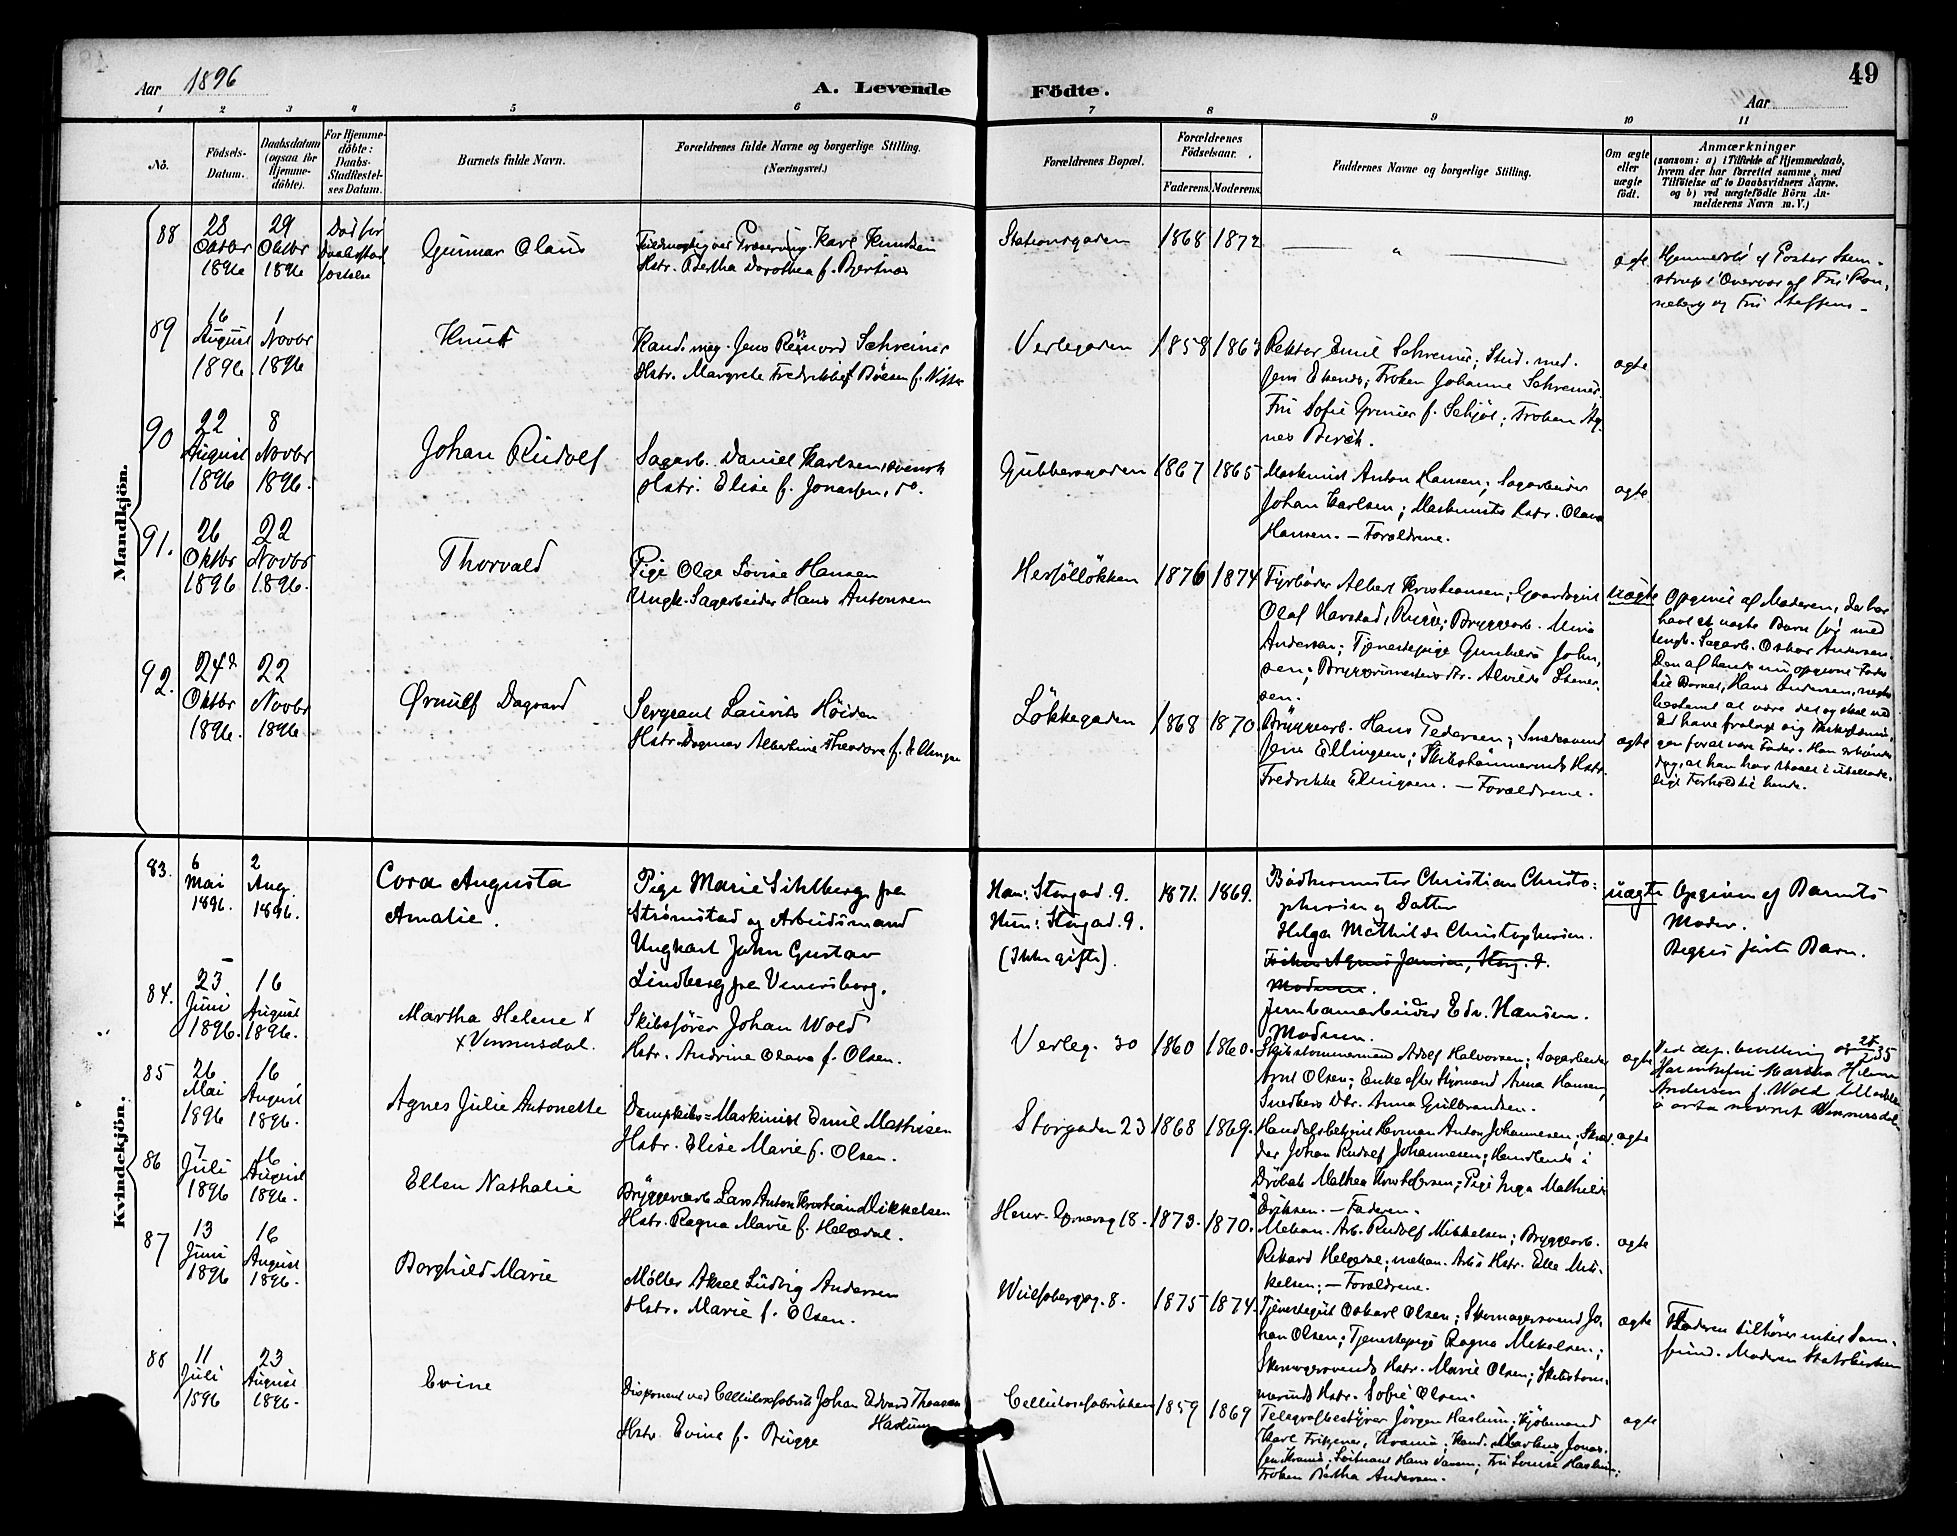 49
Aar 1896
A. Levende Födte.
Aar
1 2 3 4 5 6 7 8 9 10 11
No.
Födsels-Datum.
Daabsdatum (ogsaa for Hjemme-döbte).
For Hjemme-döbte: Daabs-Stadfæstel-ses Datum.
Barnets fulde Navn.
Forældrenes fulde Navne og borgerlige Stilling.
(Næringsvei.)
Forældrenes Bopæl.
Forældrenes Födselsaar.
Faderens. Moderens.
Faddernes Navne og borgerlige Stilling.
Om ægte eller uægte födt.
Anmærkninger
(saasom: a) i Tilfælde af Hjemmedaab,
hvem der har forrettet samme, med
Tilföielse af to Daabsvidners Navne.
og b) ved uægtefödte Börn An-
melderens Navn m. V.)
Mandkjön.
88
28 Oktbr 1896
29 Oktbr 1896
Død før
Gunnar Olaus
Karl Knudsen
Hstr. Bertha Dorothea f. Bjertnæs
Stationsgaden
1868 1872
"
ægte
Hjemmedøbt af Pastor Stem-
strup i Nærvær af Frk. Ron-
neberg og Fru Steffens -
89
16 August 1896
1 Novbr 1896
Knut
Kand. mag. Jens Schreiner
Hstr. Margrete Fredrikke
Verlegaden
1858 1863
Rektor Emil Schreiner; Stud. med.
Jens Frøken Johanne Schreiner
Fru Sofie f. Frøken Ag-
nes
ægte
90
22 August 1896
8 Novbr 1896.
Johan Rudolf
Sagarb. Daniel Karlsen, svensk
Hstr. Elise f. Jonassen, do.
Gubberogaden
1867 1865
Maskinist Anton Hansen; Sagarbeider
Johan Karlsen; Maskinists Hstr. Olava
Hansen. - Forældrene.
ægte
91.
26 Oktbr 1896
22 Novbr 1896.
Thorvald
Pige Olga Lovise Hansen
Ungk. Sagarbeider Hans Antonsen
Herføllökken
1876 1874
Fyrbøder Albert Kristiansen; Gaardsgut
Olaf Harstad, Bryggearb. Mina
Andersen; Tjenestepige Gunhild John-
sen; Alvilde Stener-
sen.
uægte
Opgivet af Moderen, der har
havt et uægte Barn før med
Ungk. Sagarb. Oskar Andersen.
Den af hende nu opgivne Fader
til Barnet, Hans Andersen, negter
bestemt at være det og skal
92.
24de Oktbr 1896.
22 Novbr 1896
Ørnulf Dagvard
Sergeant Laurits Høiden
Hstr. Dagmar Albertine Theodora f. Ellingsen
Lökkegaden
1868 1870.
Bryggearb. Hans Pedersen; Smedesvend
Jens Ellingsen; Skibstømmermands Hstr.
Fredrikke Ellingsen. - Forældrene.
ægte
Kvindekjön.
83.
6 Mai 1896.
2 Aug. 1896.
Cora Augusta
Amalie.
Pige Marie Sihlberg fra
Strømstad og Arbeidsmand
Ungkarl John Gustav
Lindberg fra Venersborg.
Han: Storgad. 9.
Hun: Storgad. 9.
(Ikke gifte).
1871. 1869.
Bødkermester Christian Christo-
phersen og Datter
Helga Mathilde Christophersen.
Moderen.
Jernbanearbeider Edv. Hansen.
Moderen.
uægte
Opgiven af Barnets
Moder.
Begges første Barn.
84.
23 Juni 1896.
16 August 1896.
Martha Helene x
x Vennersdal.
Skibsfører Johan Wold
Hstr. Andrine Olava f. Olsen.
Verleg. 30
1860 1860.
Skibstømmermand Adolf Halvorsen; Sagarbeider
Arnt Olsen; Enke efter Styrmand Anna Hansen,
Snedkers Dtr. Anna Gulbrandsen.
ægte
Ved dep. bevilling av 35
Har Martha Helene
Andersen f. Wold tilladelse
å anta navnet Vennersdal.
85
26 Mai 1896
16 August 1896.
Agnes Julie Antonette
Dampskibs=Maskinist Emil Mathisen
Hstr. Elise Marie f. Olsen.
Storgaden 23
1868 1869.
Handelsbetjent Herman Anton Johannesen; Skræd-
der Johan Rudolf Johannesen; Handlende i
Drøbak Mathea Kristofersen; Pige Inga Mathilde
Eriksen. - Faderen.
ægte
86
7 Juli 1896
16 August 1896.
Ellen Nathalie
Bryggearb. Lars Anton Kristian Mikkelsen
Hstr. Ragna Marie f. Helgedal.
18.
1873. 1870.
Mekan. Arb. Rudolf Mikkelsen; Bryggearb.
Rikard Helgedal; mekan. Arb.s Hstr. Ella Mik-
kelsen; - Forældrene.
ægte
87
13 Juni 1896
16 August 1896.
Borghild Marie
Møller Aksel Ludvig Andersen
Hstr. Marie f. Olsen.
Wulfsbergsg. 8.
1875 1874.
Tjenestegut Oskar Olsen; Skomagersvend Jo-
han Olsen; Tjenestepige Ragna Mikalsen;
Skomagersvends Hstr. Marie Olsen; Skibstøm-
mermands Hstr. Sofie Olsen.
ægte
Faderen tilhører intet Sam-
fund. Moderen Statskirken
88
11 Juli 1896
23 August 1896.
Evine
Disponent ved Cellulosefabrik Johan Edvard Thomsen
Haslum
Hstr. Evine f. Brügge
Cellulosefabrikken
1859 1869
Telegrafbestyrer Jørgen Haslum; Kjøbmand
Karl Fritzner, Kr.ania; Kand. Markus Jonas-
sen Kr.ania; Løitnant Hans Jansen; Fru Louise Haslum;
Frøken Bertha Andersen.
ægte